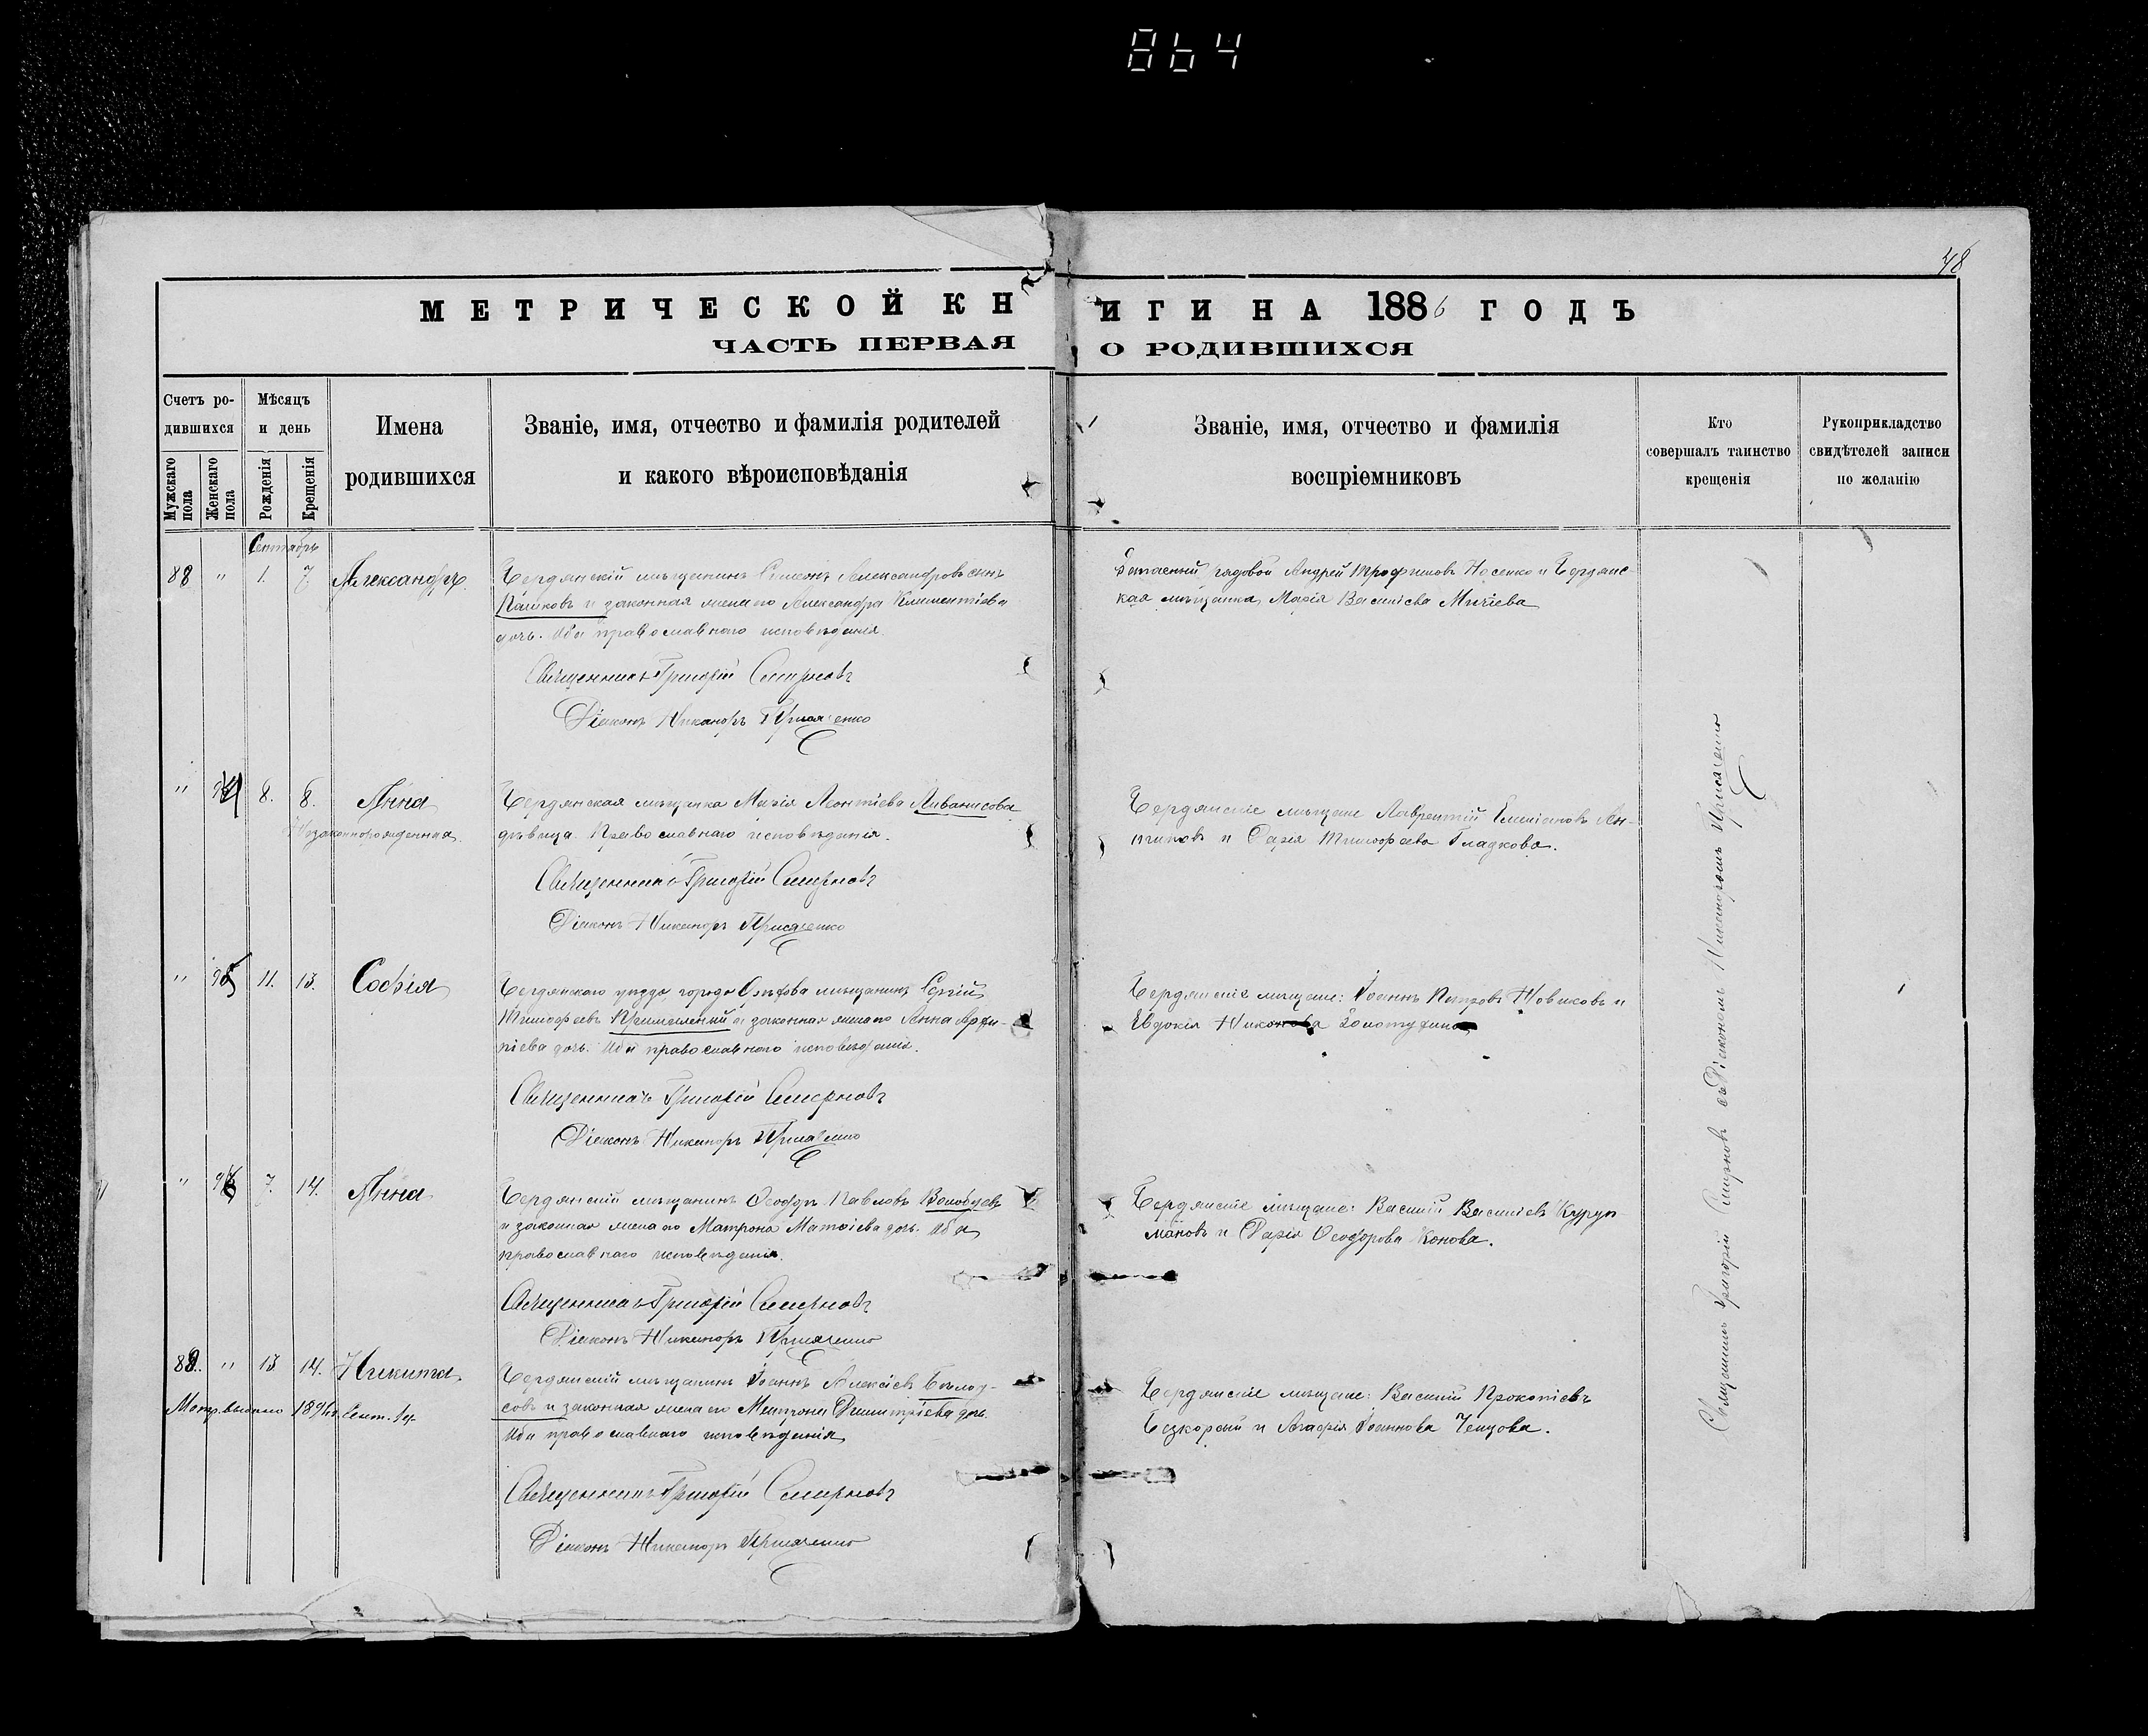 864
48
МЕТРИЧЕСКОЙ КНИГИ НА 1886 ГОДЪ
ЧАСТЬ ПЕРВАЯ О РОДИВШИХСЯ
Счетъ ро-
дившихся
Мужскаго пола
Женскаго пола
Мѣсяцъ
и день
Рожденія
Крещенія
Имена
родившихся
Званіе, имя, отчество и фамилія родителей
и какого вѣроисповѣданія
Званіе, имя, отчество и фамилія
воспріемниковъ
Кто
совершалъ таинство
крещенія
Рукоприкладство
свидѣтелей записи
по желанію
Сентябрь
88 " 1. 7. Александръ
Бердянскій мѣщанинъ Симеонъ Александровъ сынъ
и законная жена его Александра Климентіева
дочь. Оба православнаго исповѣданія.
Священникъ Григорій Смирновъ
Діаконъ Никаноръ
рядовой Андрей Трофимовъ Носенко и Бердянс-
кая мѣщанка Марія Василіева
" 94 8. 8. Анна
Незаконнорожденная
Бердянская мѣщанка Марія Леонтіева Ливанисова
дѣвица. Православнаго исповѣданія.
Священникъ Григорій Смирновъ
Діаконъ Никаноръ
Бердянскіе мѣщане Лаврентій Емиліановъ
и Дарія Тимофеева Гладкова.
" 95 11. 13. Софія
Бердянскаго уѣзда города Орѣхова мѣщанинъ Сергій
Тимофеевъ и законная жена его Анна
дочь. Оба православнаго исповѣданія.
Священникъ Григорій Смирновъ
Діаконъ Никаноръ
Бердянскіе мѣщане: Іоаннъ Петровъ Новиковъ и
Евдокія
" 96 7. 14. Анна
Бердянскій мѣщанинъ Ѳеодоръ Павловъ
и законная жена его Матрона Матѳіева дочь. Оба
православнаго исповѣданія.
Священникъ Григорій Смирновъ
Діаконъ Никаноръ
Бердянскіе мѣщане: Василій Василіевъ
и Дарія Ѳеодорова Конова.
89. " 13. 14. Никита.
Бердянскій мѣщанинъ Іоаннъ Алексіевъ
и законная жена его Матрона Димитріева дочь.
Оба православнаго исповѣданія
Священникъ Григорій Смирновъ
Діаконъ Никаноръ
Бердянскіе мѣщане: Василій Прокопіевъ
и Агафія Іоаннова
Священникъ Григорій Смирновъ съ Діакономъ Никаноромъ